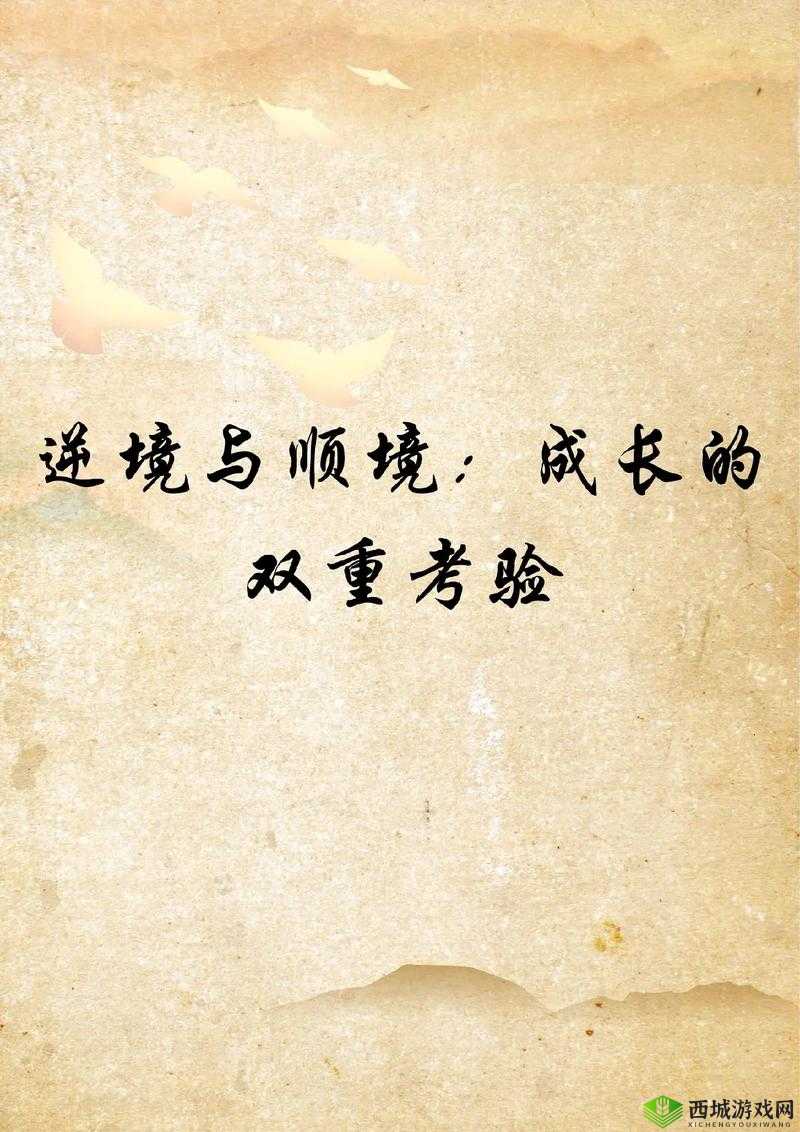 逆境与顺境：成长的
双重考验
西城游戏网
XICHENGYOUXIWANG